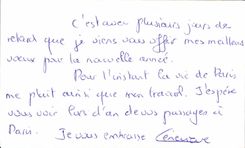 C'est avec plusieurs jours de
retard que je viens vous offrir mes meilleurs
vœux pour la nouvelle année.
Pour l'instant la vie de Paris
me plait ainsi que mon travail. J'espère
vous voir lors d'un de vos passages à
Paris. Je vous embrasse Geneviève